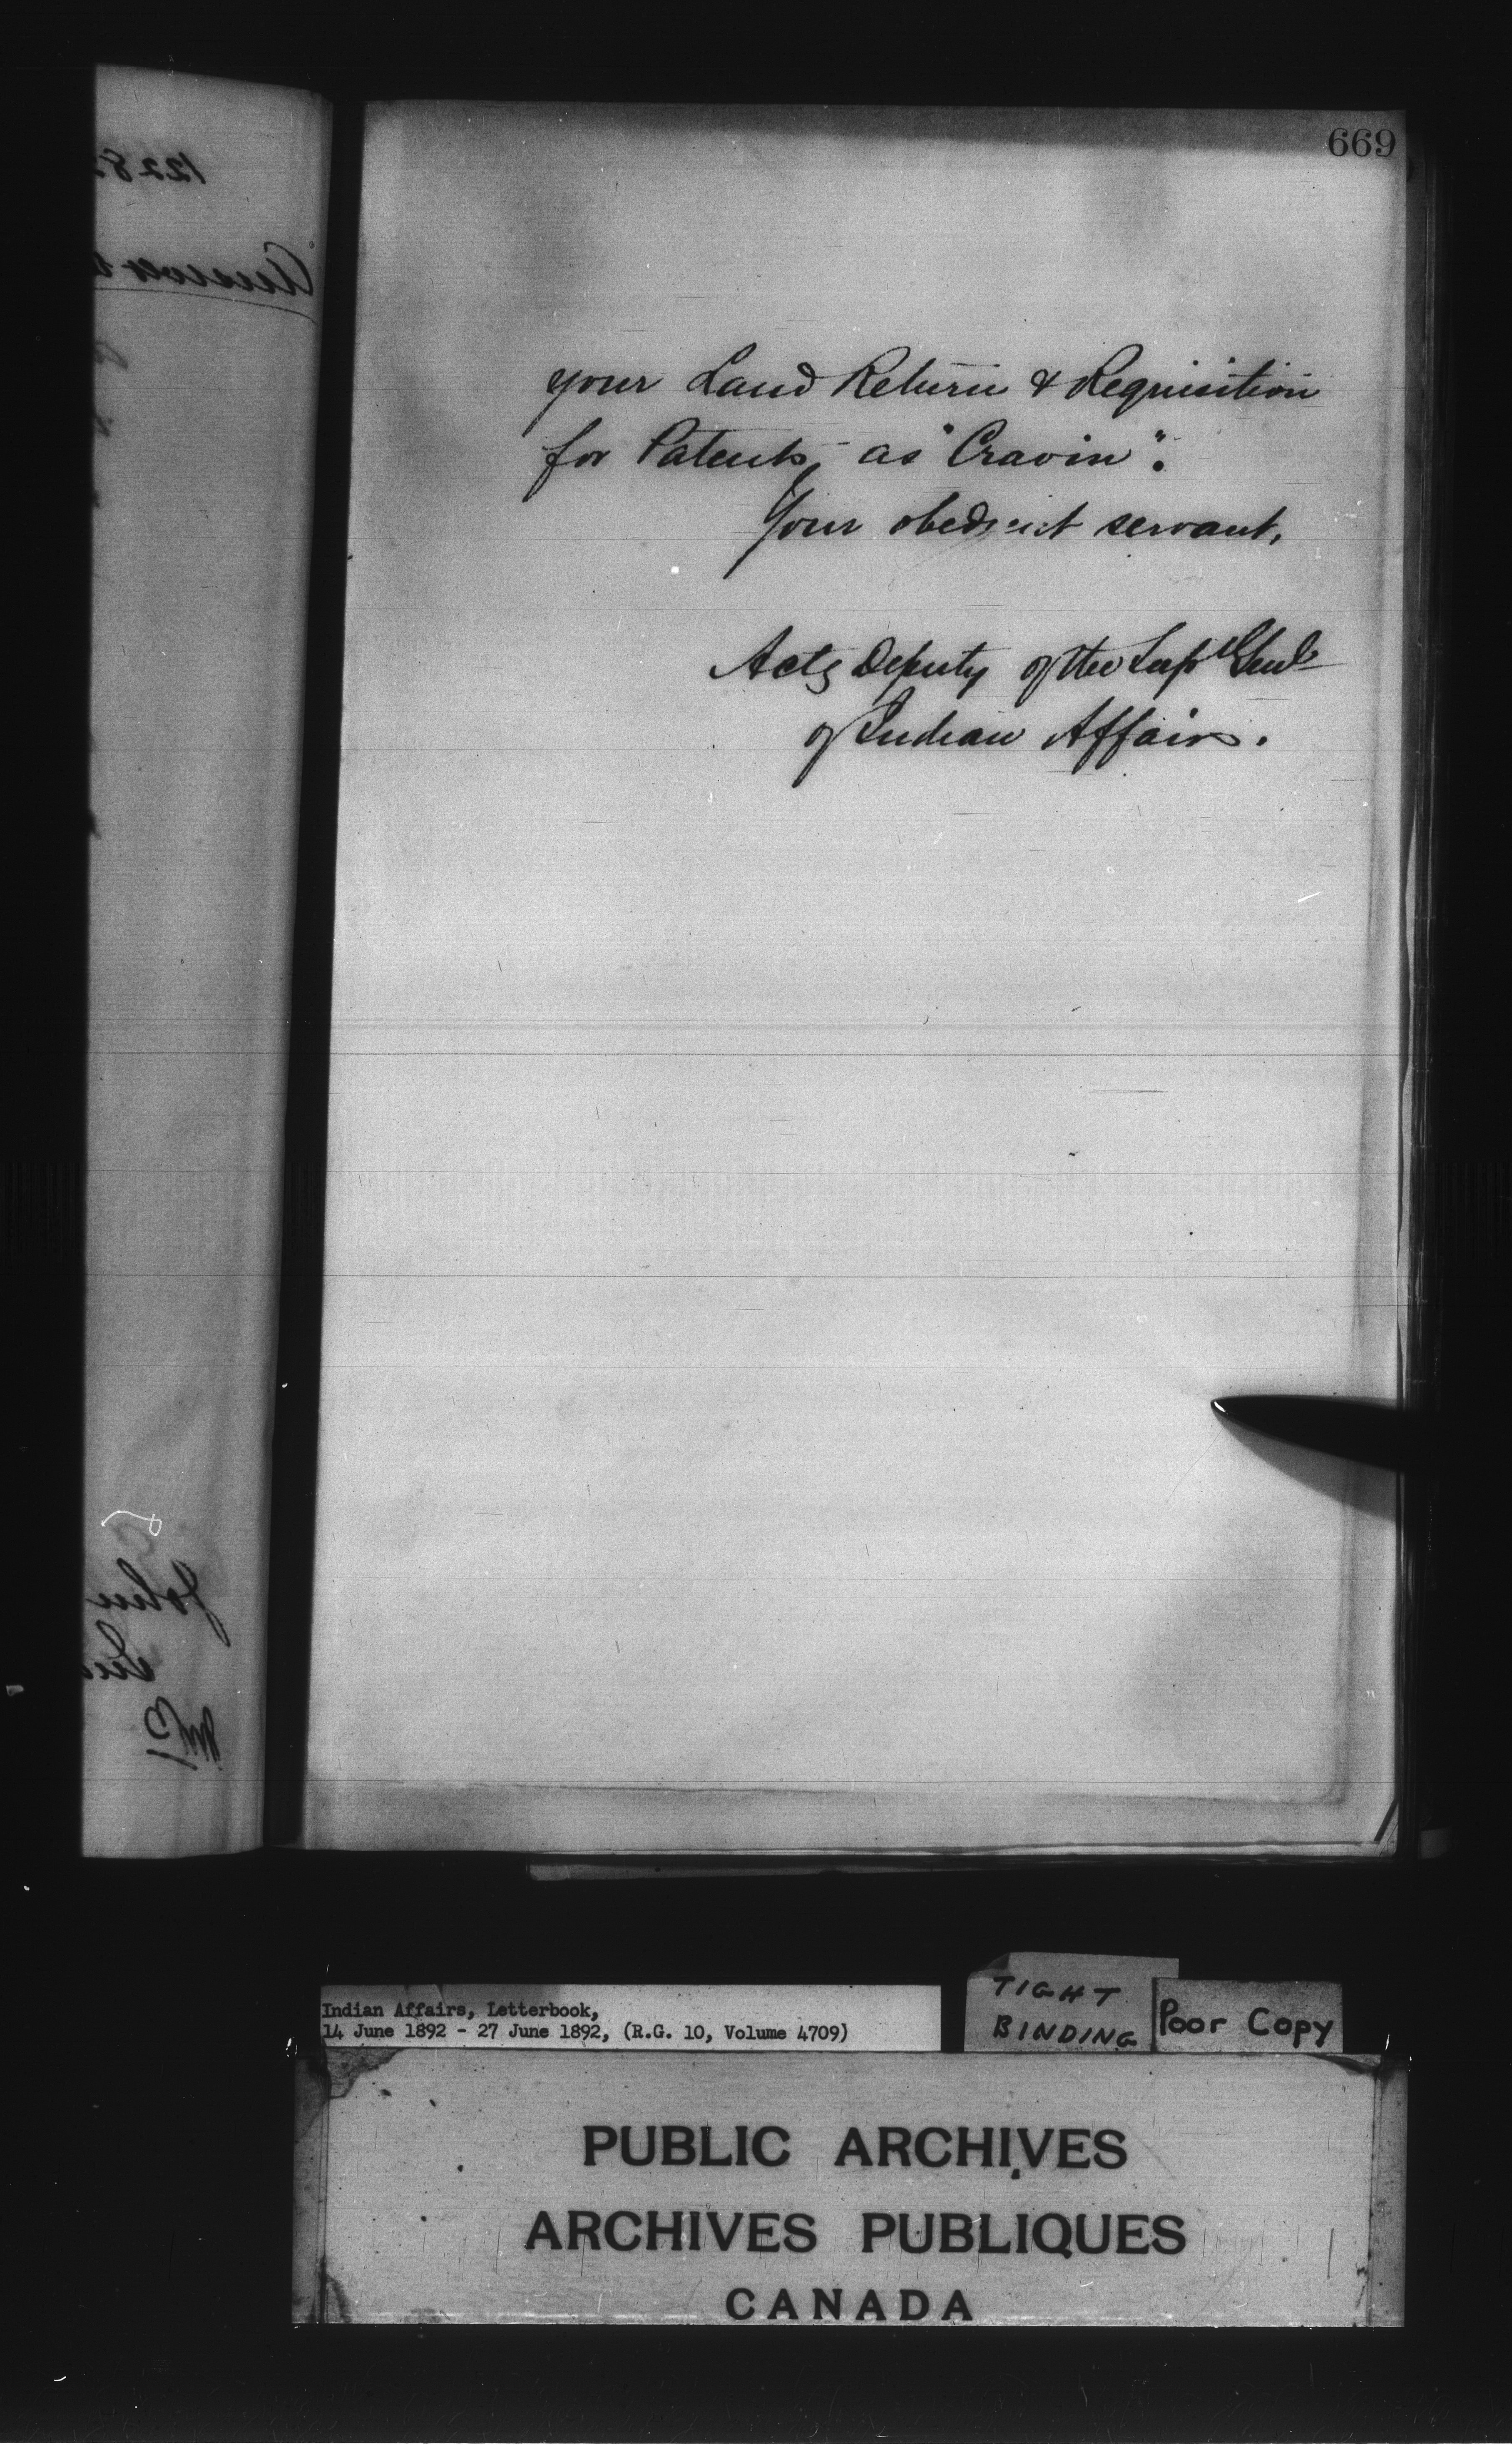 669
your Land Return & Requisition
for Patents, as "Cravin".
Your obedient servant,
Actg Deputy of the Supt Genl
of Indian Affairs.
1228
Answer
John
Indian Affairs, Letterbook,
14 June 1892 - 27 June 1892, (R.G. 10, Volume 4709)
TIGHT
BINDING
Poor Copy
PUBLIC ARCHIVES
ARCHIVES PUBLIQUES
CANADA